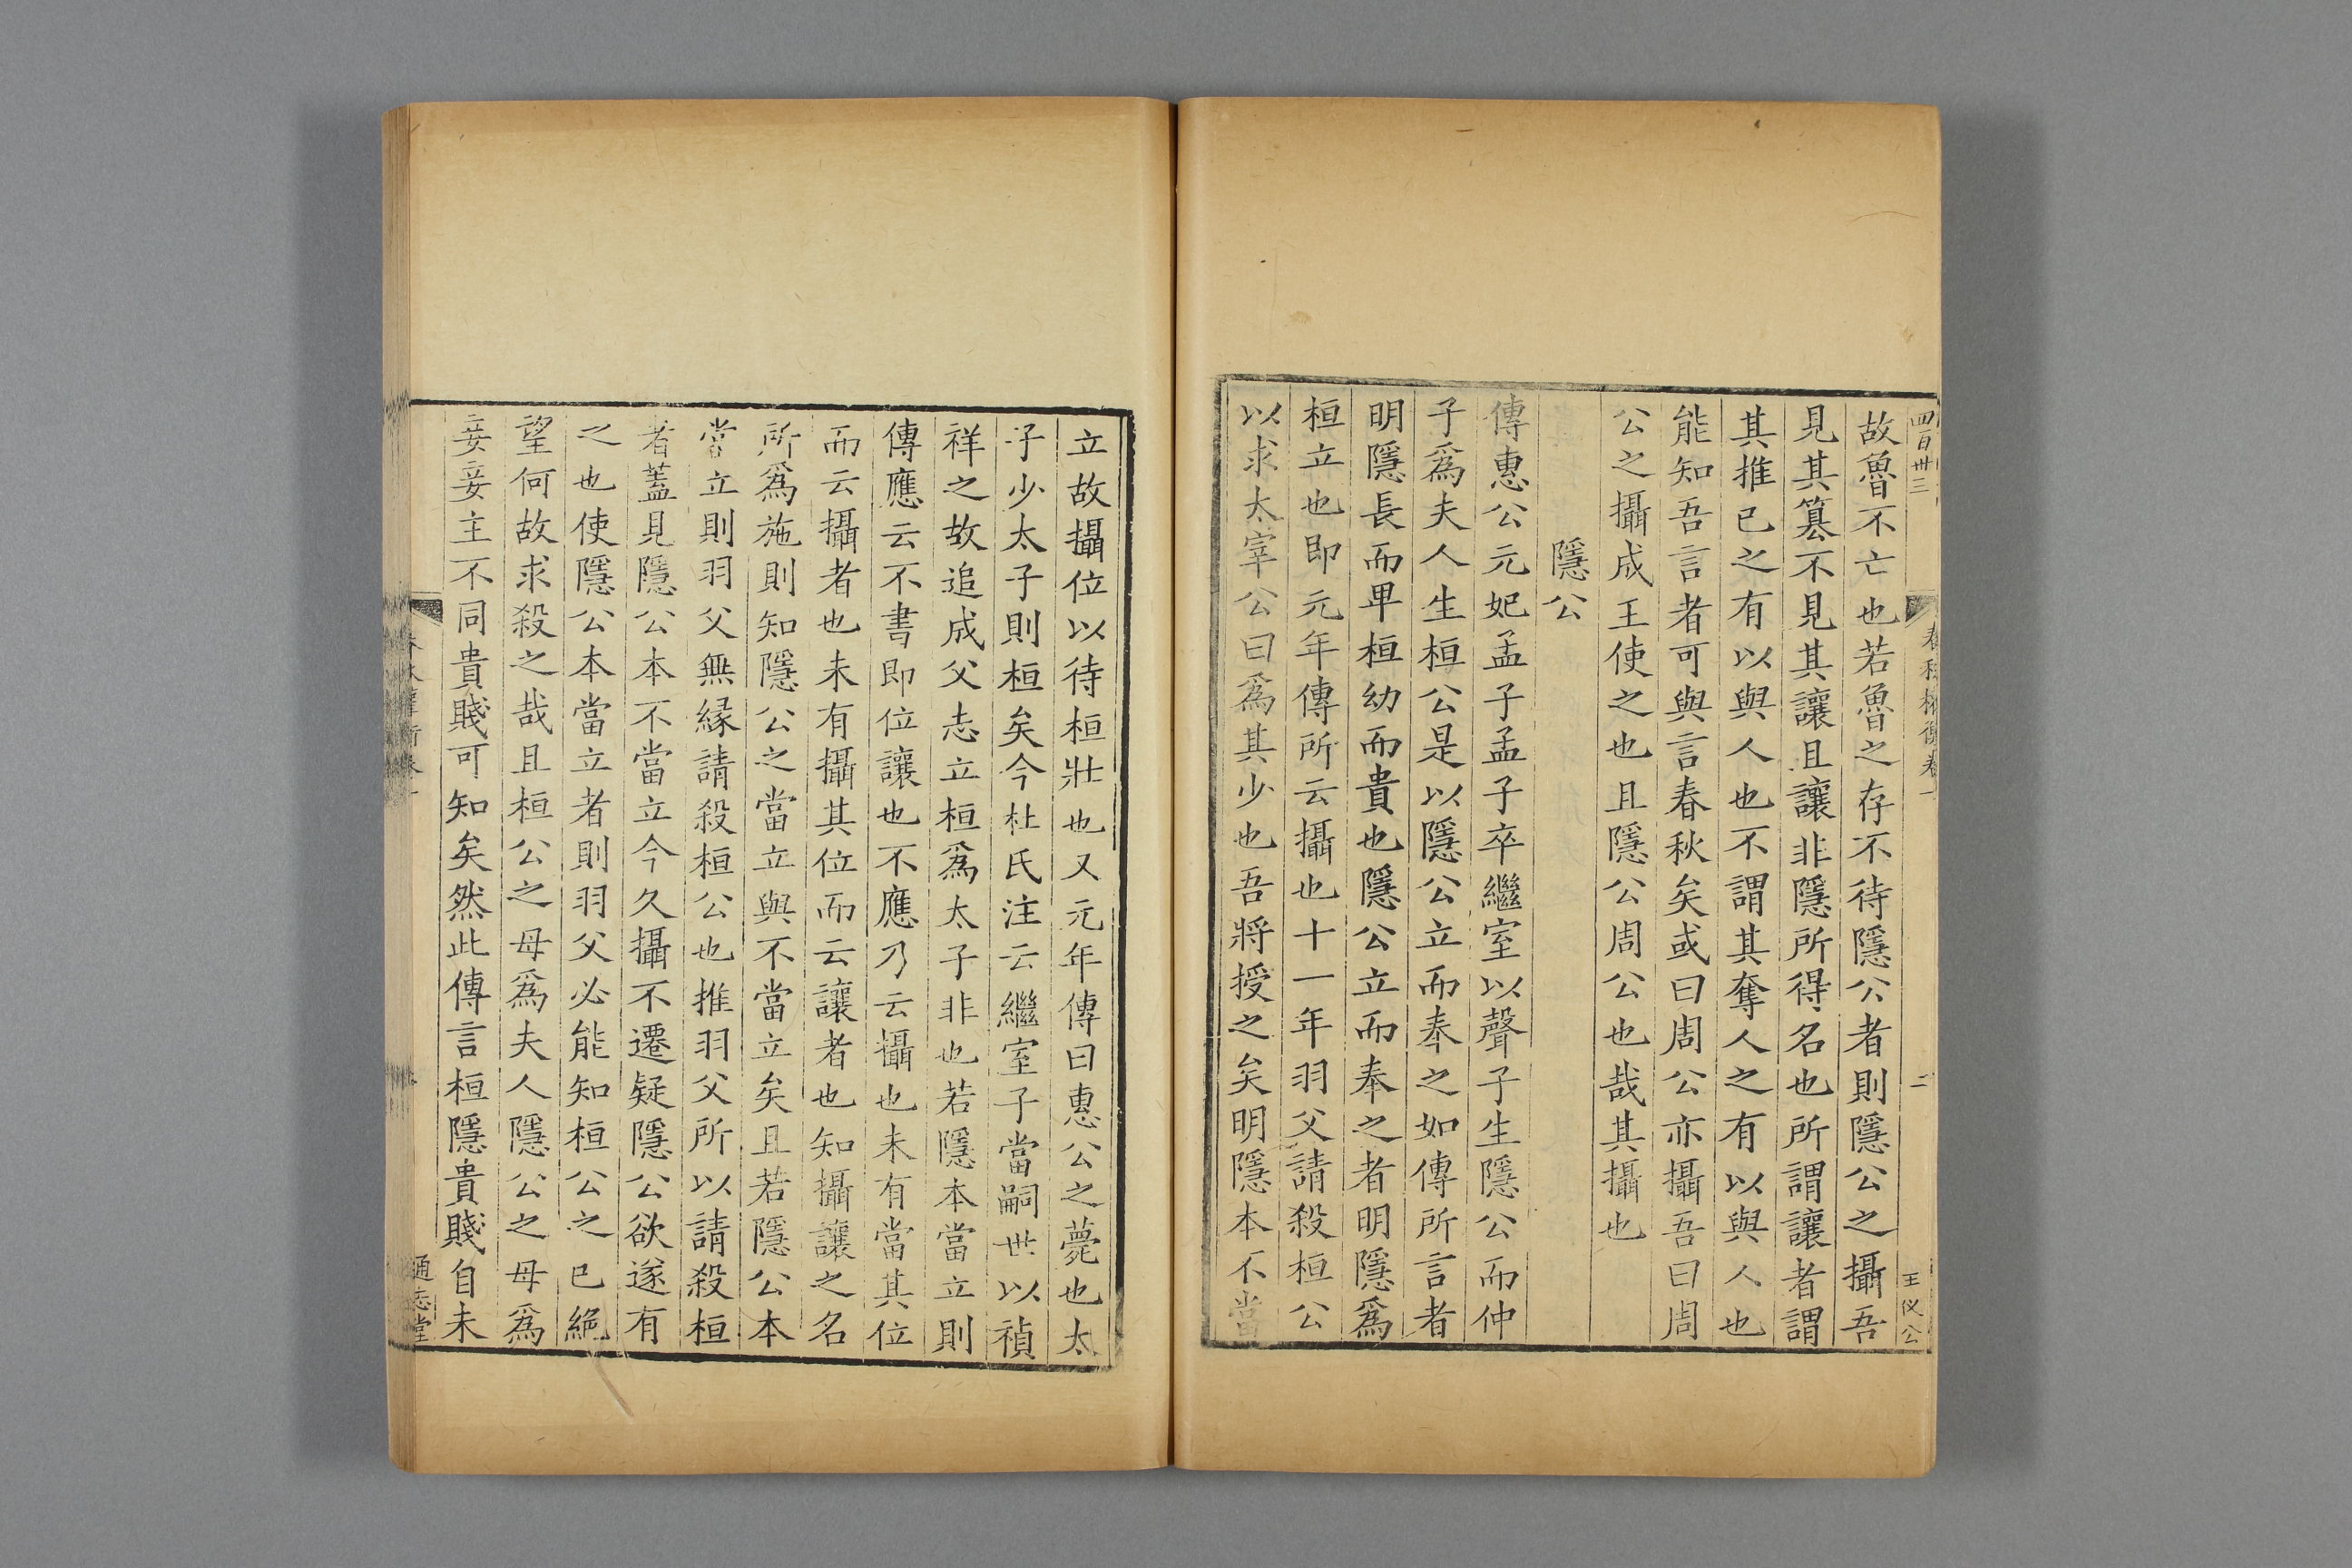 四百卅三
春秋權衡卷一
二
王仪公
故魯不亡也若魯之存不待隱公者則隱公之攝吾
見其簒不見其讓且讓非隱所得名也所謂讓者謂
其推已之有以與人也不謂其奪人之有以與人也
能知吾言者可與言春秋矣或曰周公亦攝吾曰周
公之攝成王使之也且隱公周公也哉其攝也
隱公
傳惠公元妃孟子孟子卒繼室以聲子生隱公而仲
子爲夫人生桓公是以隱公立而奉之如傳所言者
明隱長而卑桓幼而貴也隱公立而奉之者明隱爲
桓立也即元年傳所云攝也十一年羽父請殺桓公
以求太宰公曰爲其少也吾將授之矣明隱本不當
立故攝位以待桓壯也又元年傳曰惠公之薨也太
子少太子則桓矣今杜氏注云繼室子當嗣世以禎
祥之故追成父志立桓爲太子非也若隱本當立則
傳應云不書即位讓也不應乃云攝也未有當其位
而云攝者也未有攝其位而云讓者也知攝讓之名
所爲施則知隱公之當立與不當立矣且若隱公本
當立則羽父無緣請殺桓公也推羽父所以請殺桓
者蓋見隱公本不當立今久攝不遷疑隱公欲遂有
之也使隱公本當立者則羽父必能知桓公之已絕
望何故求殺之哉且桓公之母爲夫人隱公之母爲
妾妾主不同貴賤可知矣然此傳言桓隱貴賤自未
春秋權衡卷一
通志堂